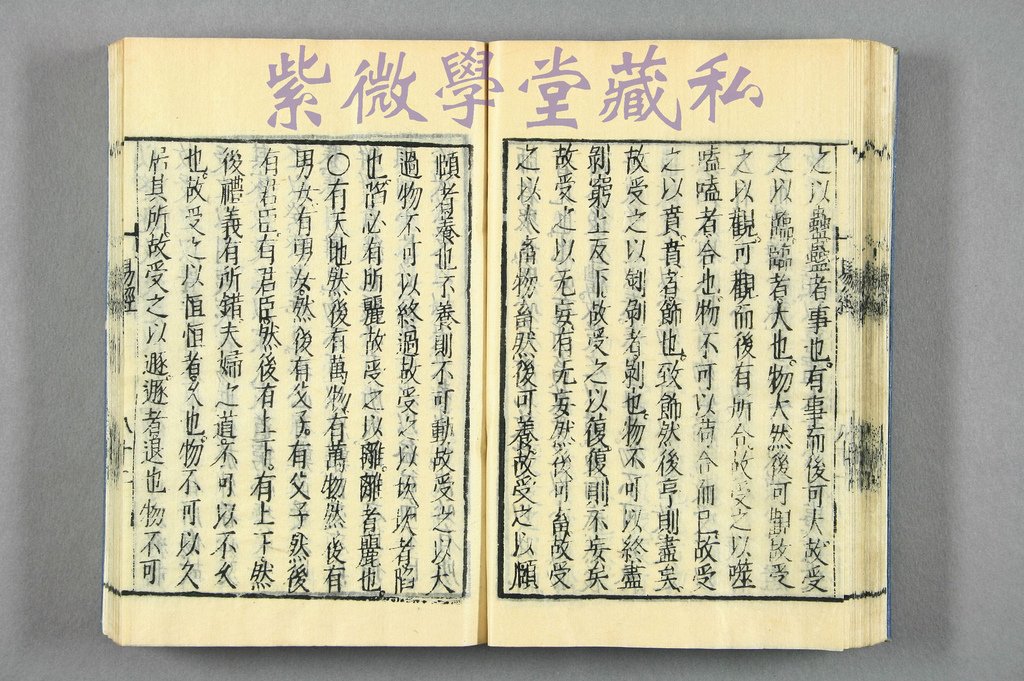 紫微學堂藏私
之以蠱蠱者事也有事而後可大故受
之以臨臨者大也物大然後可觀故受
之以觀可觀而後有所合故受之以噬
嗑嗑者合也物不可以苟合而已故受
之以賁賁者飾也致飾然後亨則盡矣
故受之以剝剝者剝也物不可以終盡
剝窮上反下故受之以復復則不妄矣
故受之以无妄有无妄然後可畜故受
之以大畜物畜然後可養故受之以頤
頤者養也不養則不可動故受之以大
過物不可以終過故受之以坎坎者陷
也陷必有所麗故受之以離離者麗也
○有天地然後有萬物有萬物然後有
男女有男女然後有父子有父子然後
有君臣有君臣然後有上下有上下然
後禮義有所錯夫婦之道不可以不久
也故受之以恒恒者久也物不可以久
居其所故受之以遯遯者退也物不可
易經
八十二
易經